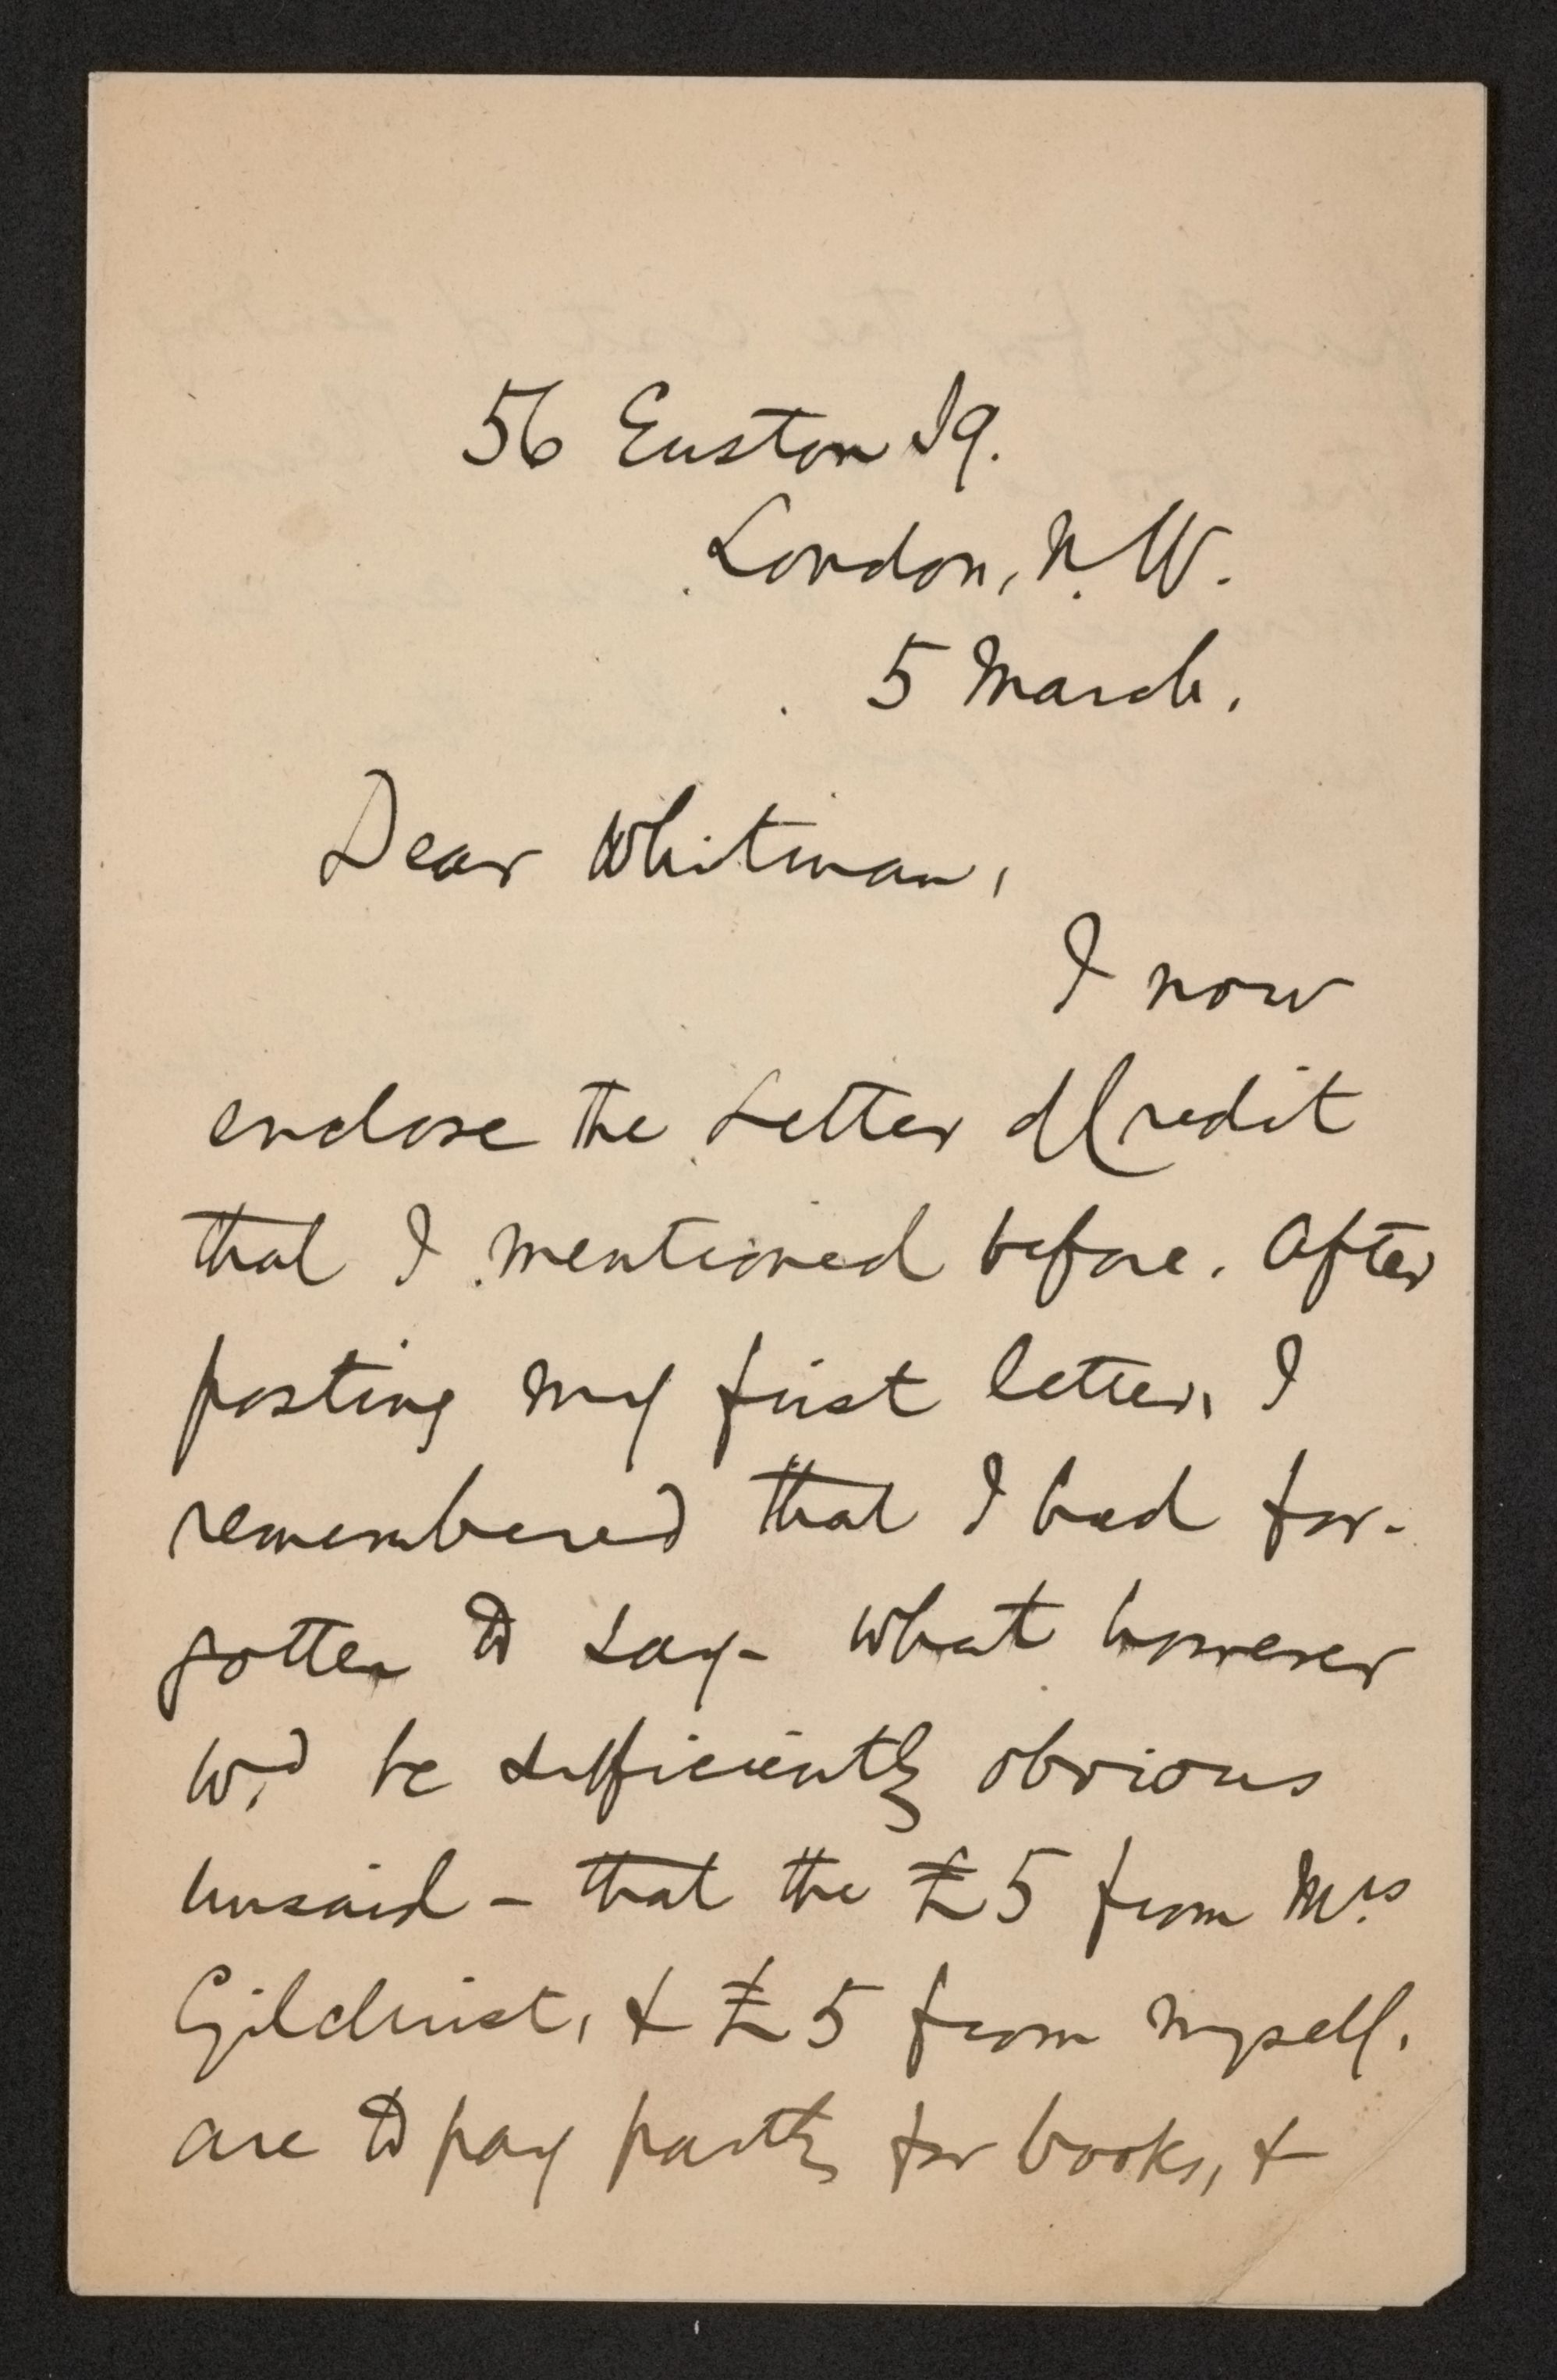 56 Euston Sq.
London, N.W.
5 March.
Dear Whitman,
I now
enclose the Letter of Credit
that I mentioned before. After
posting my first letter, I
remembered that I had for-
gotten to say - what however
wd. be sufficiently obvious
unsaid - that the £5 from Mrs.
Gilchrist, & £5 from myself,
are to pay partly for books, &